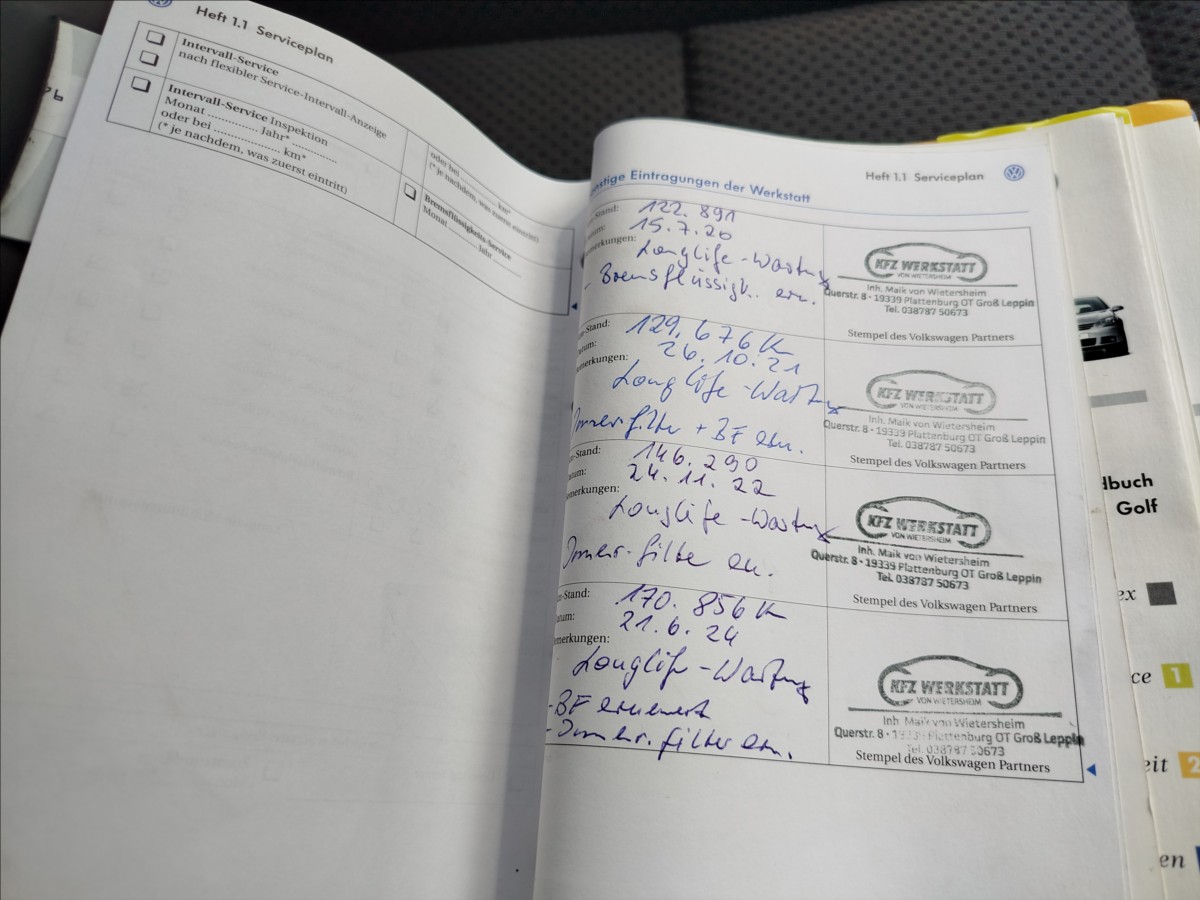 Heft 1.1 Serviceplan
Intervall-Service
nach flexibler Service-Intervall-Anzeige
Intervall-Service Inspektion
Monat .............. Jahr* ............
oder bei .................. km*
(* je nachdem, was zuerst eintritt)
oder bei .......... km*
(* je nachdem, was zuerst eintritt)
Bremsflüssigkeits-Service
Monat .......... Jahr ..........
nstige Eintragungen der Werkstatt
Heft 1.1 Serviceplan
-Stand: 122.891
tum: 15.7.20
emerkungen:
Longlife-Wartung
- Bremsflüssigk. ern.
KFZ WERKSTATT
VON WIETERSHEIM
Inh. Maik von Wietersheim
Querstr. 8 · 19339 Plattenburg OT Groß Leppin
Tel. 038787 50673
Stempel des Volkswagen Partners
-Stand: 129.676 K
atum: 26.10.21
emerkungen:
Longlife-Wartung
Innenfilter + BF ern.
KFZ WERKSTATT
VON WIETERSHEIM
Inh. Maik von Wietersheim
Querstr. 8 · 19339 Plattenburg OT Groß Leppin
Tel. 038787 50673
Stempel des Volkswagen Partners
-Stand: 146.290
atum: 24.11.22
emerkungen:
Longlife-Wartung
Innenr.filter ern.
KFZ WERKSTATT
VON WIETERSHEIM
Inh. Maik von Wietersheim
Querstr. 8 · 19339 Plattenburg OT Groß Leppin
Tel. 038787 50673
Stempel des Volkswagen Partners
-Stand: 170.856 K
tum: 21.6.24
emerkungen:
Longlife-Wartung
- BF erneuert
- Innenr.filter ern.
KFZ WERKSTATT
VON WIETERSHEIM
Inh. Maik von Wietersheim
Querstr. 8 · 19339 Plattenburg OT Groß Leppin
Tel. 038787 50673
Stempel des Volkswagen Partners
dbuch
Golf
ex
ce 1
eit 2
en